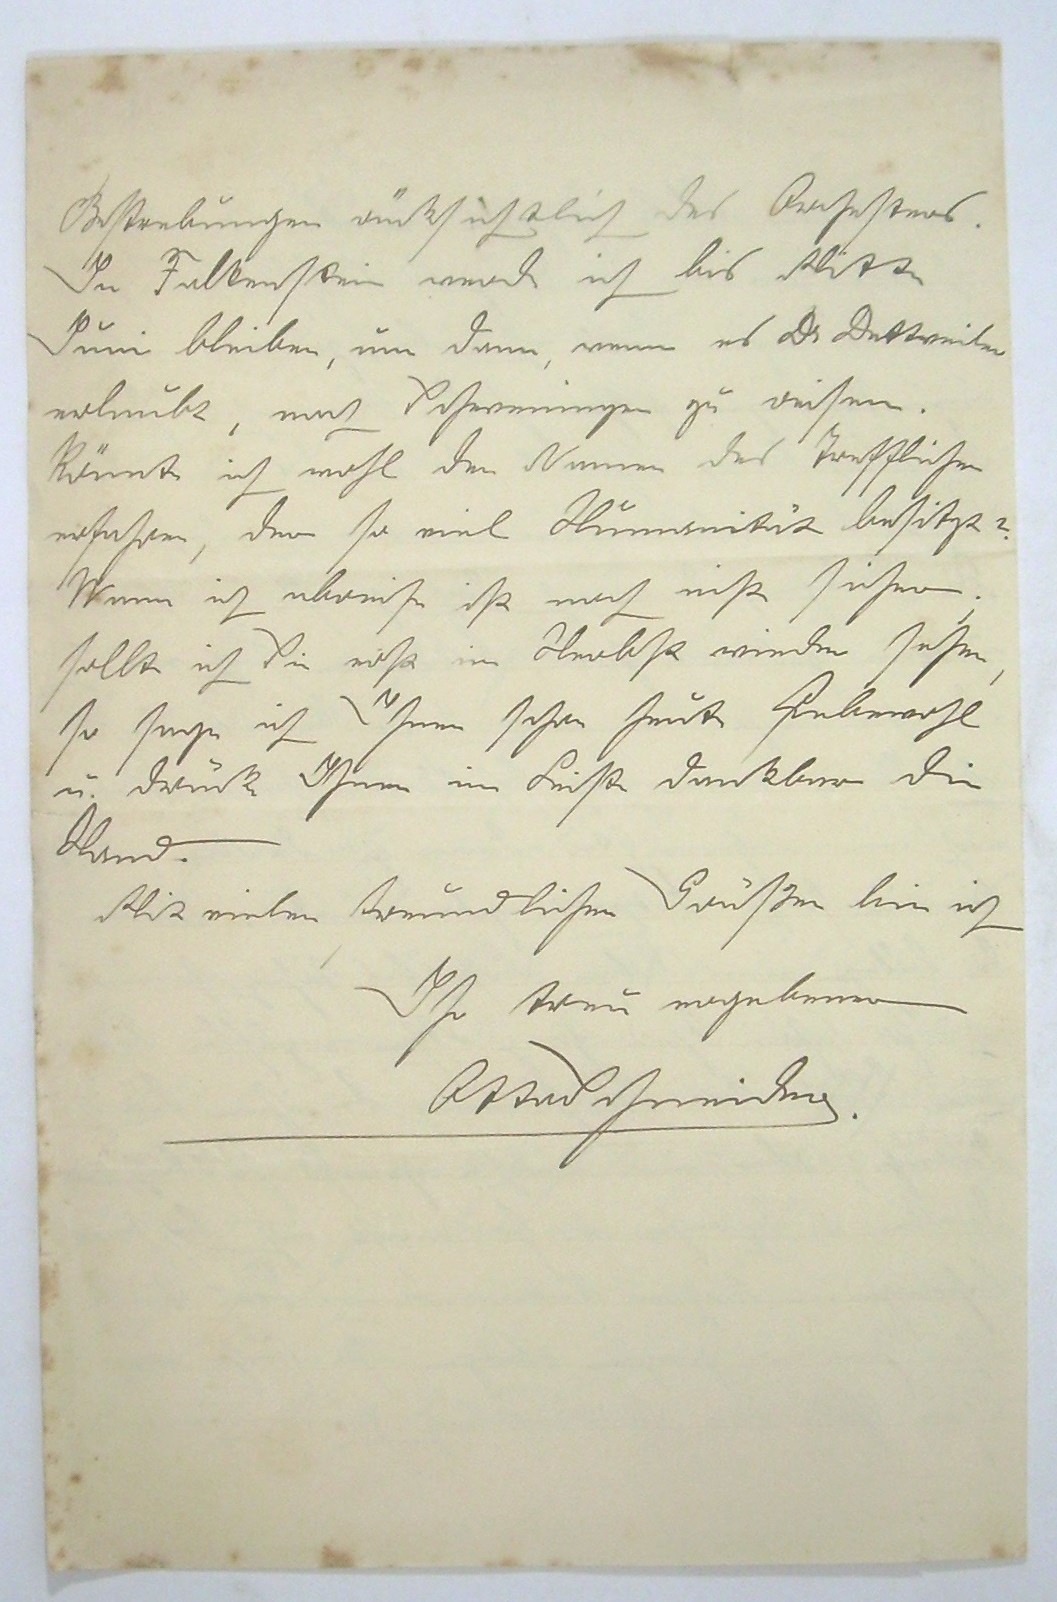 Bestrebungen rücksichtlich des Orchesters.
In Falkenstein werde ich bis Mitte
Juni bleiben, um dann, wenn es Dr Dettweiler
erlaubt, nach Scheveningen zu reisen.
Könnte ich wohl den Namen des Trefflichen
erfahren, der so viel Humanität besitzt?
Wann ich abreise ist noch nicht sicher;
sollte ich Sie erst im Herbst wieder sehen,
so sage ich Ihnen schon heute Lebewohl
u. drücke Ihnen im Geiste dankbar die
Hand.
Mit vielen freundlichen Grüßen bin ich
Ihr treu ergebener
Otto Schneider.